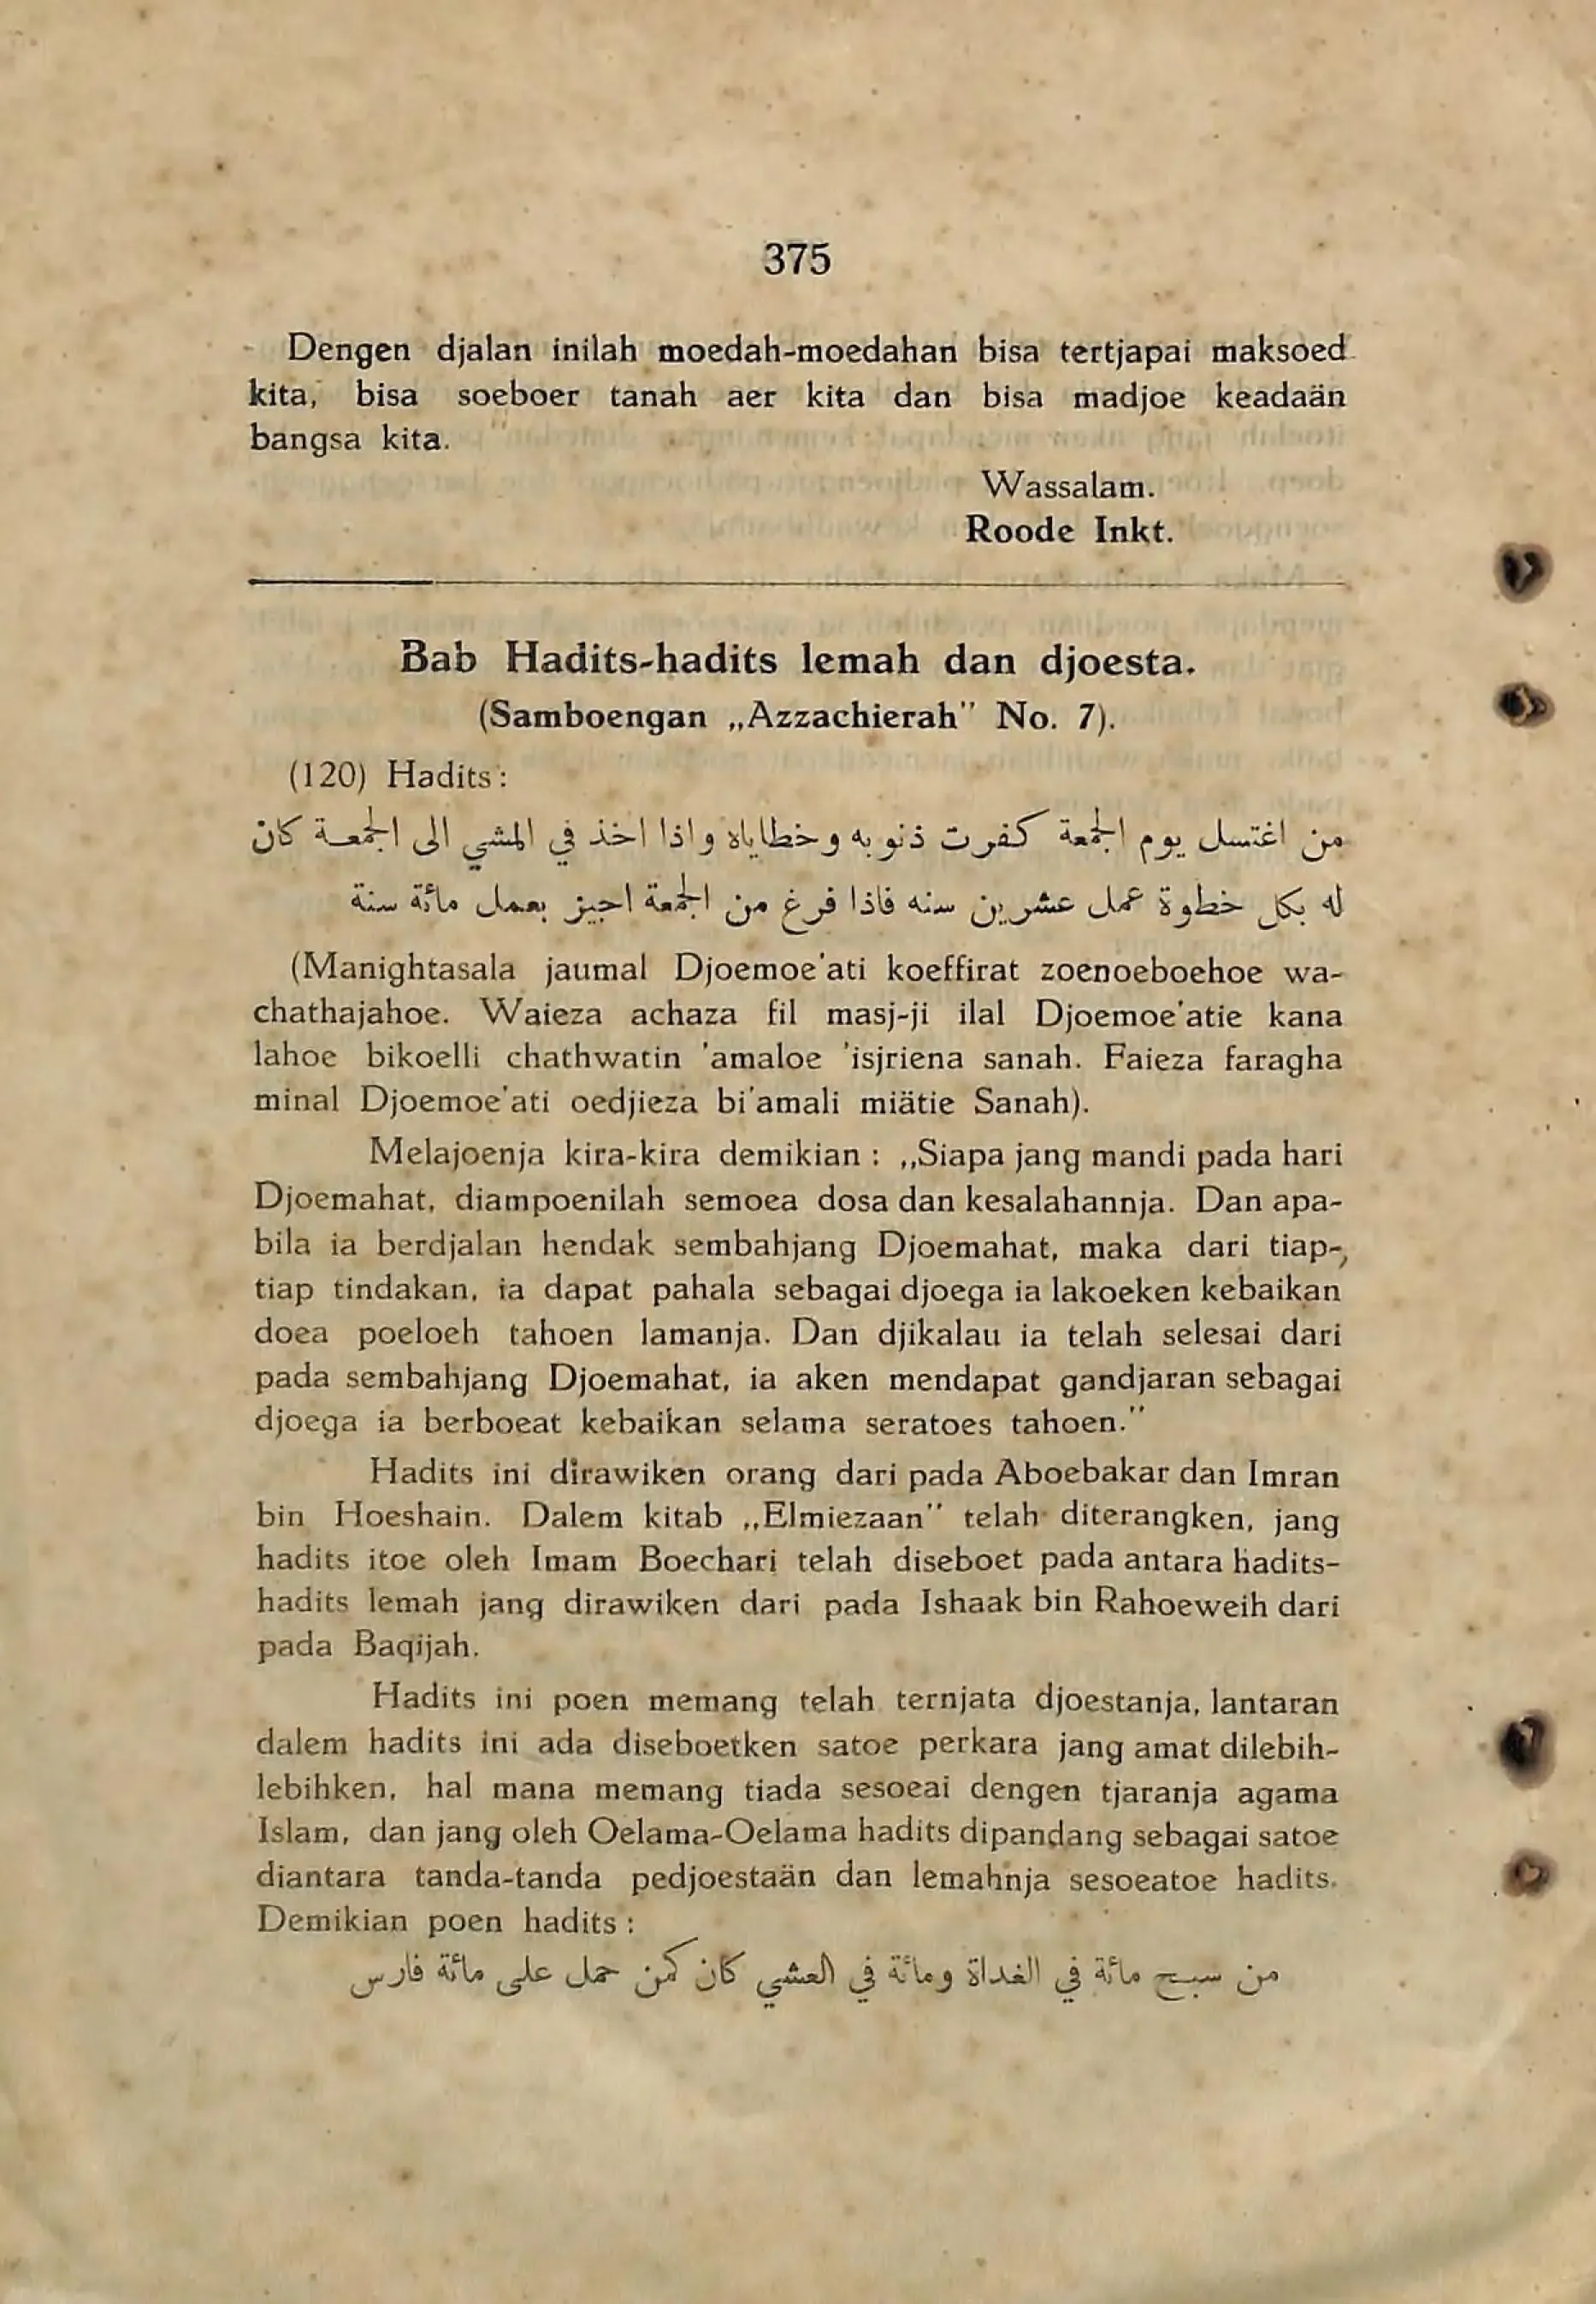 375
Dengen djalan inilah moedah-moedahan bisa tertjapai maksoed
kita, bisa soeboer tanah aer kita dan bisa madjoe keadaän
bangsa kita.
Wassalam.
Roode Inkt.
Bab Hadits-hadits lemah dan djoesta.
(Samboengan „Azzachierah" No. 7).
(120) Hadits:
من اغتسل يوم الجمعة كفرت ذنوبه وخطاياه واذا اخذ في المشي الى الجمعة كان
له بكل خطوة عمل عشرين سنه فاذا فرغ من الجمعة اجيز بعمل مائة سنة
(Manightasala jaumal Djoemoe'ati koeffirat zoenoeboehoe wa-
chathajahoe. Waieza achaza fil masj-ji ilal Djoemoe'atie kana
lahoe bikoelli chathwatin 'amaloe 'isjriena sanah. Faieza faragha
minal Djoemoe'ati oedjieza bi'amali miätie Sanah).
Melajoenja kira-kira demikian : „Siapa jang mandi pada hari
Djoemahat, diampoenilah semoea dosa dan kesalahannja. Dan apa-
bila ia berdjalan hendak sembahjang Djoemahat, maka dari tiap-
tiap tindakan, ia dapat pahala sebagai djoega ia lakoeken kebaikan
doea poeloeh tahoen lamanja. Dan djikalau ia telah selesai dari
pada sembahjang Djoemahat, ia aken mendapat gandjaran sebagai
djoega ia berboeat kebaikan selama seratoes tahoen."
Hadits ini dirawiken orang dari pada Aboebakar dan Imran
bin Hoeshain. Dalem kitab „Elmiezaan" telah diterangken, jang
hadits itoe oleh Imam Boechari telah diseboet pada antara hadits-
hadits lemah jang dirawiken dari pada Ishaak bin Rahoeweih dari
pada Baqijah.
Hadits ini poen memang telah ternjata djoestanja, lantaran
dalem hadits ini ada diseboetken satoe perkara jang amat dilebih-
lebihken, hal mana memang tiada sesoeai dengen tjaranja agama
Islam, dan jang oleh Oelama-Oelama hadits dipandang sebagai satoe
diantara tanda-tanda pedjoestaän dan lemahnja sesoeatoe hadits.
Demikian poen hadits :
من سبح مائة في الغداة ومائة في العشي كان كمن حمل على مائة فارس